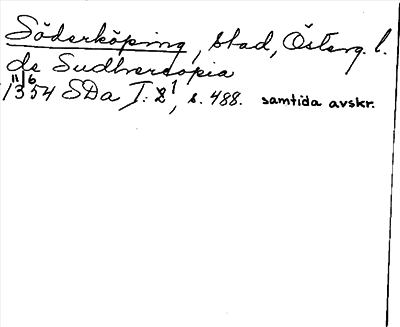 Söderköping, stad, Österg. l.
de Sudhercopia
11/6 1354 SDa I: 2¹, s. 488. samtida avskr.